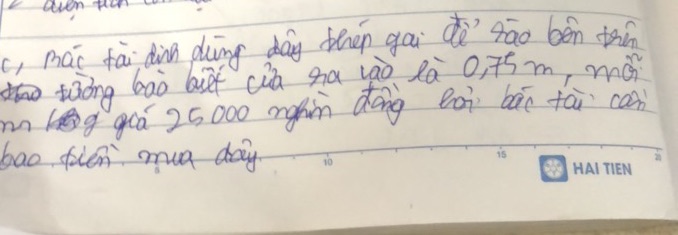 2 diện tích
c, Bác tài dình dùng dây thép gai để rào bên trên
tường bao biết cửa ra vào là 0,75 m, mỗi
m giá 25 000 nghìn đồng hỏi bác tài cần
bao tiền mua dây
10 15 20
HAI TIEN